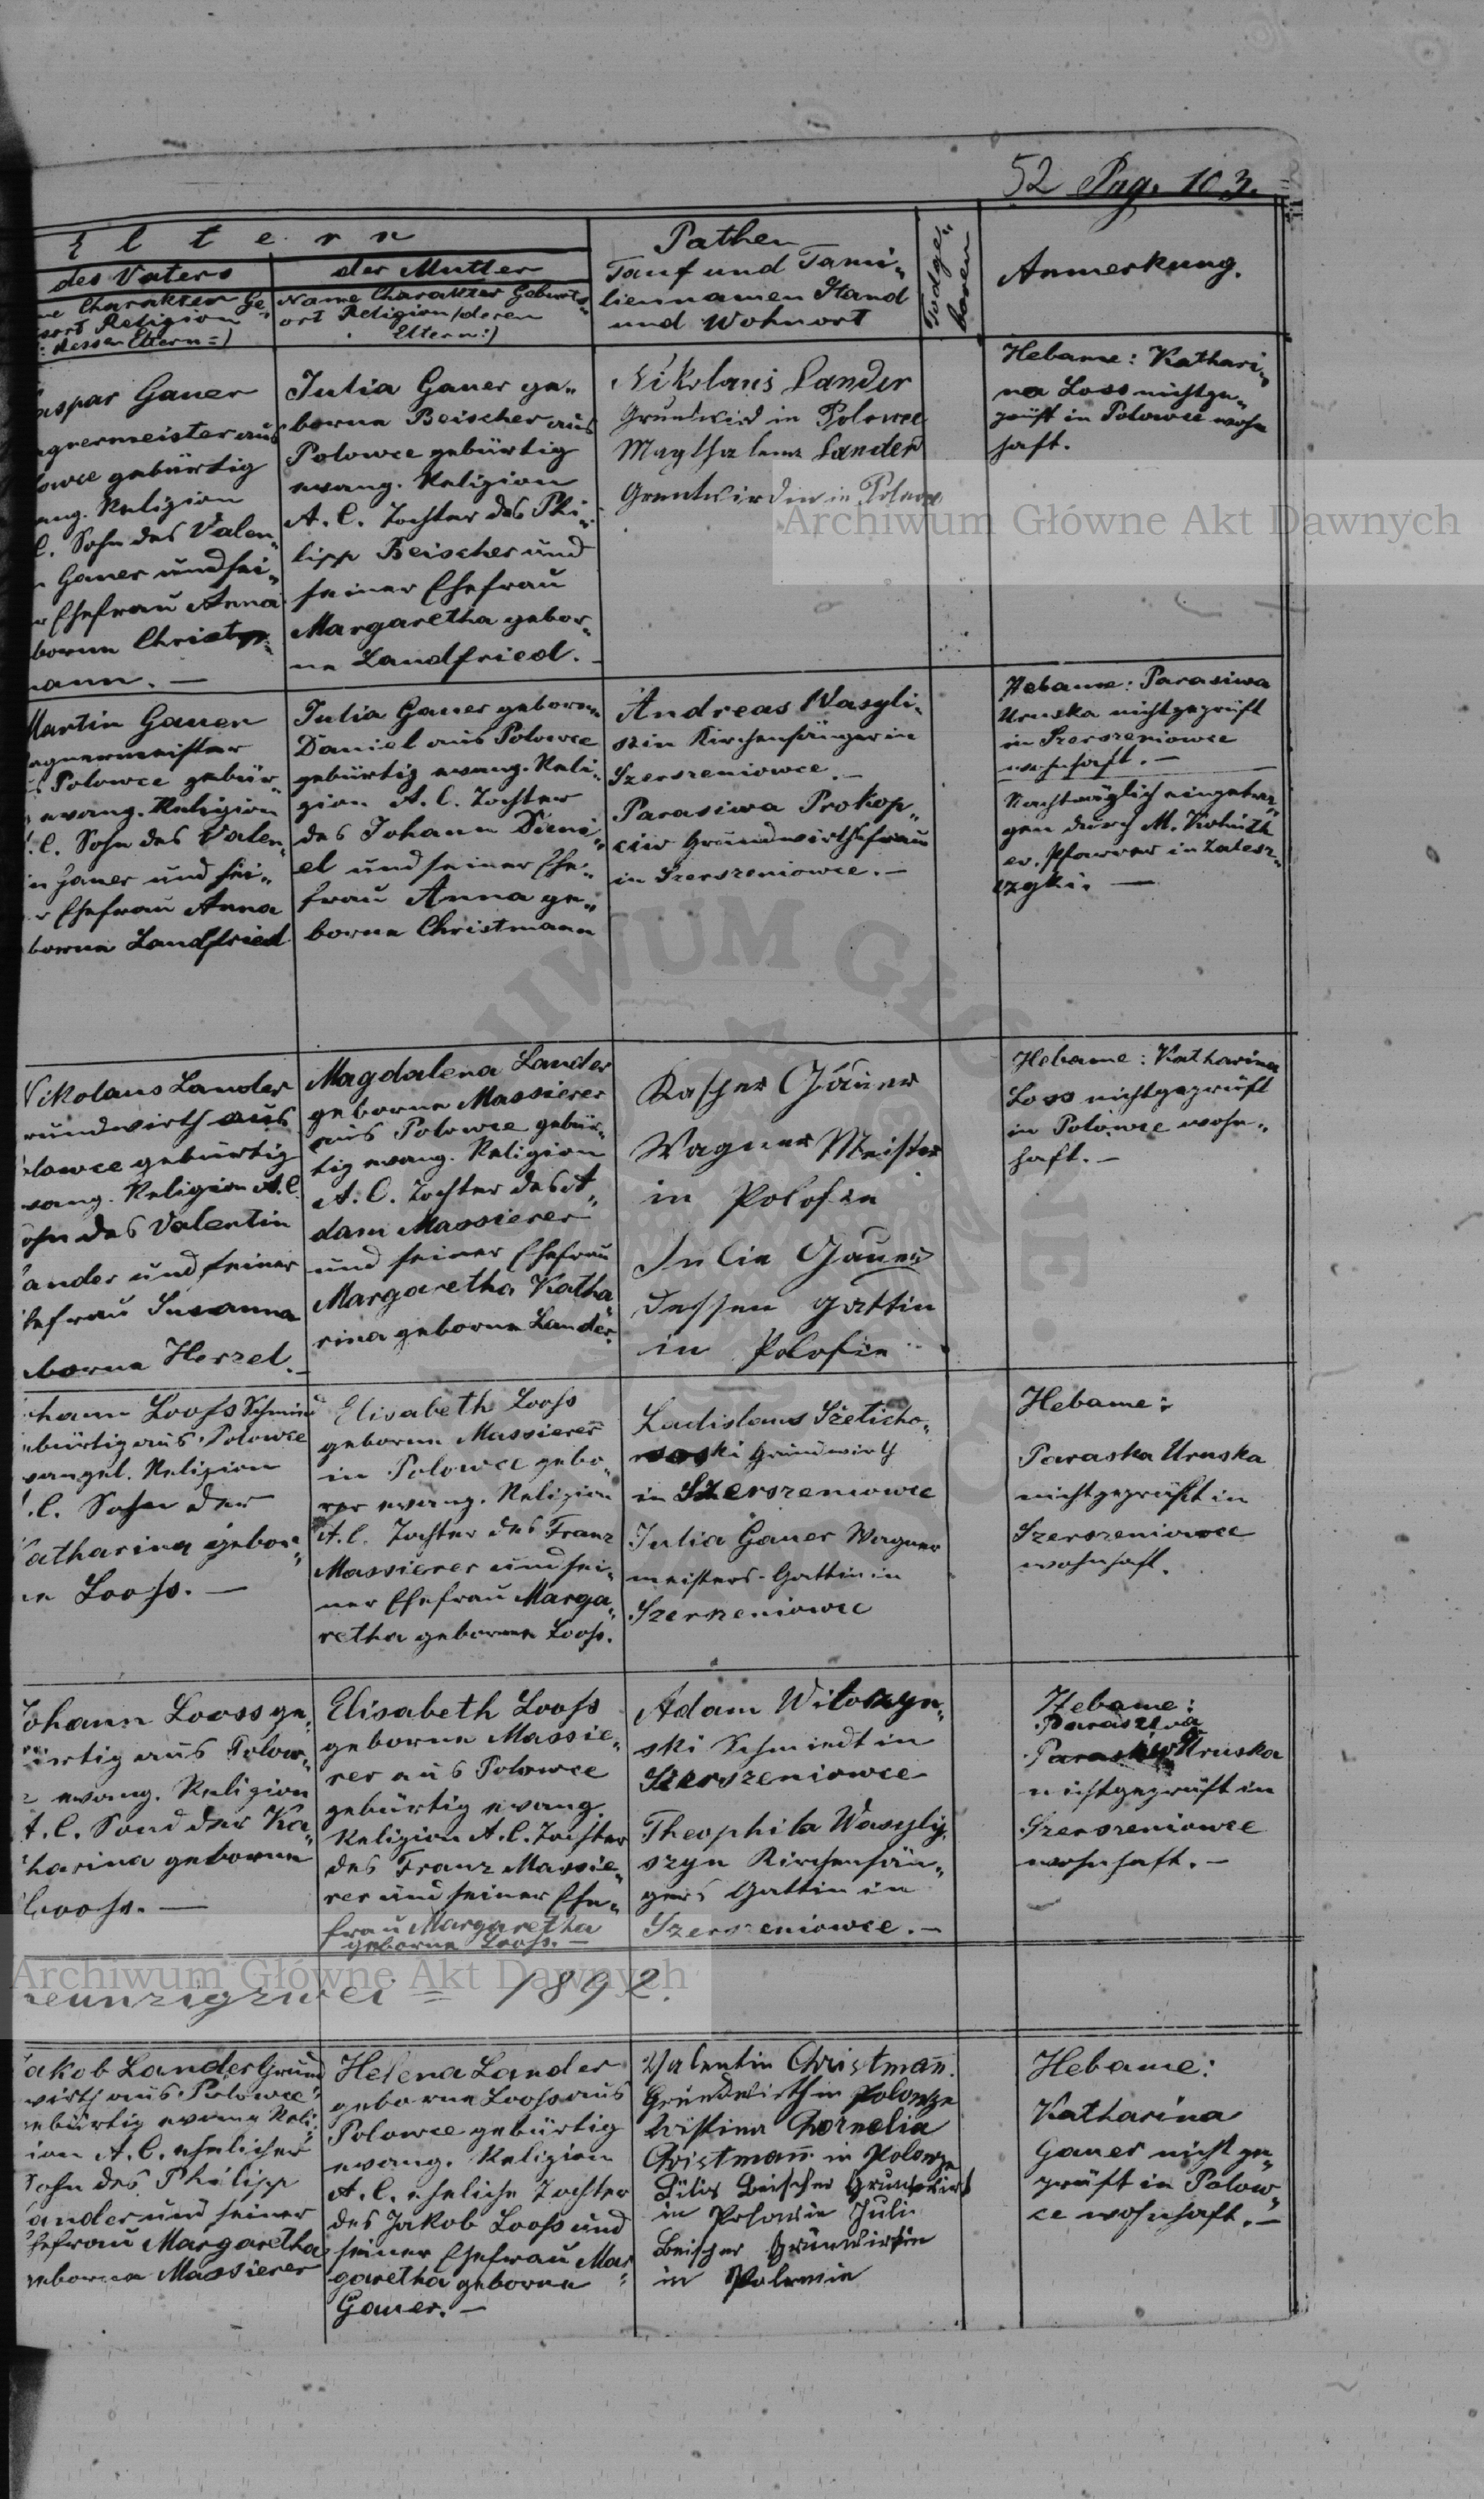 52 Pag. 103.
Eltern
des Vaters
der Mutter
Charakter Ge-
Religion
dessen Eltern =)
Name Charakter Geburts-
ort Religion /:deren
Eltern:/
Pathen
Tauf und Fami-
liennamen Stand
und Wohnort
Todge-
boren
Anmerkung.
aspar Gauer
agnermeister aus
lowce gebürtig
ang. Religion
C. Sohn des Valen-
n Gauer und sei-
r Ehefrau Anna
borne Christ-
mann. —
Julia Gauer ge-
borne Beischer aus
Polowce gebürtig
evang. Religion
A. C. Tochter des Phi-
lipp Beischer und
seiner Ehefrau
Margaretha gebor-
ne Landfried. —
Nikolaus Lander
Grundwird in Polowce
Magthalena Lander
Grentwirdin in Polowce
Hebame: Kathari-
na Loss nichtge-
prüft in Polowce wohn
haft.
Martin Gauer
agnermeister
s Polowce gebür-
evang. Religion
A. C. Sohn des Valen-
in Gauer und sei-
r Ehefrau Anna
borne Landfried
Julia Gauer geborne
Daniel aus Polowce
gebürtig evang. Reli-
gion A. C. Tochter
des Johann Dani-
el und seiner Ehe-
frau Anna ge-
borne Christmann
Andreas Wasyli-
szin Kirchensänger in
Szerszeniowce. —
Parasiwa Prokop-
ciw Grundwirthsfrau
in Szerszeniowce. —
Hebame: Parasiwa
Uruska nichtgeprüft
in Szerszeniowce
wohnhaft. —
Nachträglich eingetra-
gen durch M.
ev. Pfarrer in Zalesz-
czyki. —
Nikolaus Lander
rundwirth aus
olowce gebürtig
vang. Religion A. C.
ohn des Valentin
ander und seiner
hefrau Susanna
borne Herzel. —
Magdalena Lander
geborne Massierer
aus Polowce gebür-
tig evang. Religion
A. C. Tochter des A-
dam Massierer
und seiner Ehefrau
Margaretha Katha
rina geborne Lander.
Kasper Gauer
Wagner Meister
in Polofze
Julia Gauer
dessen gattin
in Polofze
Hebame: Katharina
Loss nichtgeprüft
in Polowce wohn-
haft. —
ohann Looss Schmied
ebürtig aus Polowce
vangel. Religion
A. C. Sohn der
atharina gebor-
ne Looss. —
Elisabeth Looss
geborne Massierer
in Polowce gebo-
rer evang. Religion
A. C. Tochter des Franz
Massierer und sei-
ner Ehefrau Marga-
retha geborne Looss.
Ladislaus Szeticho-
wski Grundwirth
in Szerszeniowce
Julia Gauer Wagner
meisters-Gattin in
Szerszeniowce
Hebame:
Paraska Uruska
nichtgeprüft in
Szerszeniowce
wohnhaft.
Johann Looss ge-
bürtig aus Polow-
ce evang. Religion
A. C. Sohn der Ka-
tharina geborne
Looss. —
Elisabeth Looss
geborne Massie-
rer aus Polowce
gebürtig evang.
Religion A. C. Tochter
des Franz Massie-
rer und seiner Ehe-
frau Margaretha
geborne Looss. —
Adam Witoszyn-
ski Schmiedt in
Szerszeniowce
Theophila Wasyly-
szyn Kirchensän-
gers Gattin in
Szerszeniowce. —
Hebame:
Uruska
nichtgeprüft in
Szerszeniowce
wohnhaft. —
neunzigzwei = 1892.
akob Lander Grund
wirth aus Polowce
ebürtig evang. Reli-
ion A. C. ehelicher
Sohn des Philipp
ander und seiner
Ehefrau Margaretha
geborne Massierer
Helena Lander
geborne Looss aus
Polowce gebürtig
evang. Religion
A. C. eheliche Tochter
des Jakob Looss und
seiner Ehefrau Mar-
garetha geborne
Gauer. —
Valentin Christmann.
Grundwirth in Polowze
Cornelia
Christmann in Polowze
Beischer Grundwirt
in Julie
Beischer Grundwirtin
in
Hebame:
Katharina
Gauer nicht ge-
prüft in Polow-
ce wohnhaft. —
Archiwum Główne Akt Dawnych
Archiwum Główne Akt Dawnych